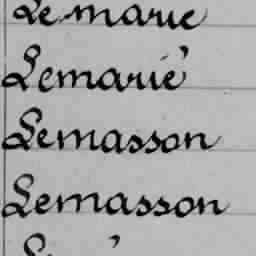 Lemarie
Lemarié
Lemasson
Lemasson